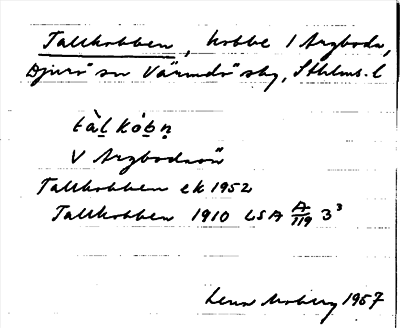 Tallkobben, kobbe i Argboda,
Djurö sn Värmdö skg, Sthlms. l
tàl kóbn̥
V Argbodaön
Tallkobben ek 1952
Tallkobben 1910 LSA A/119 3³
Lena Moberg 1957